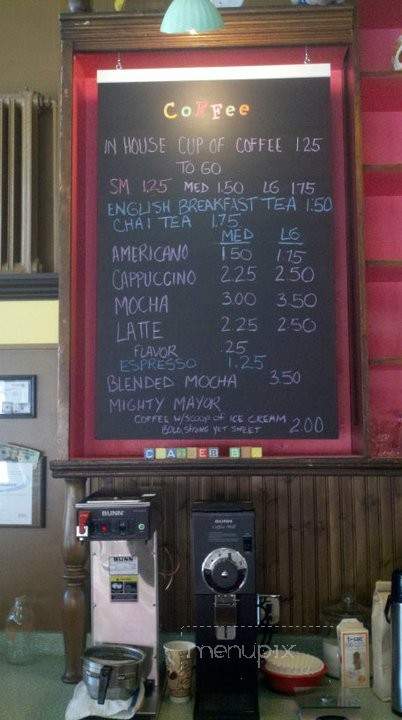 COFFEE
IN HOUSE CUP OF COFFEE 1.25
TO GO
SM 1.25 MED 1.50 LG 1.75
ENGLISH BREAKFAST TEA 1.50
CHAI TEA 1.75
MED LG
AMERICANO 1.50 1.75
CAPPUCCINO 2.25 2.50
MOCHA 3.00 3.50
LATTE 2.25 2.50
FLAVOR .25
ESPRESSO 1.25
BLENDED MOCHA 3.50
MIGHTY MAYOR
COFFEE W/SCOOP OF ICE CREAM
BOLD, STRONG YET SWEET 2.00
BUNN
BUNN
BUNN
Coffee Mill
menupix